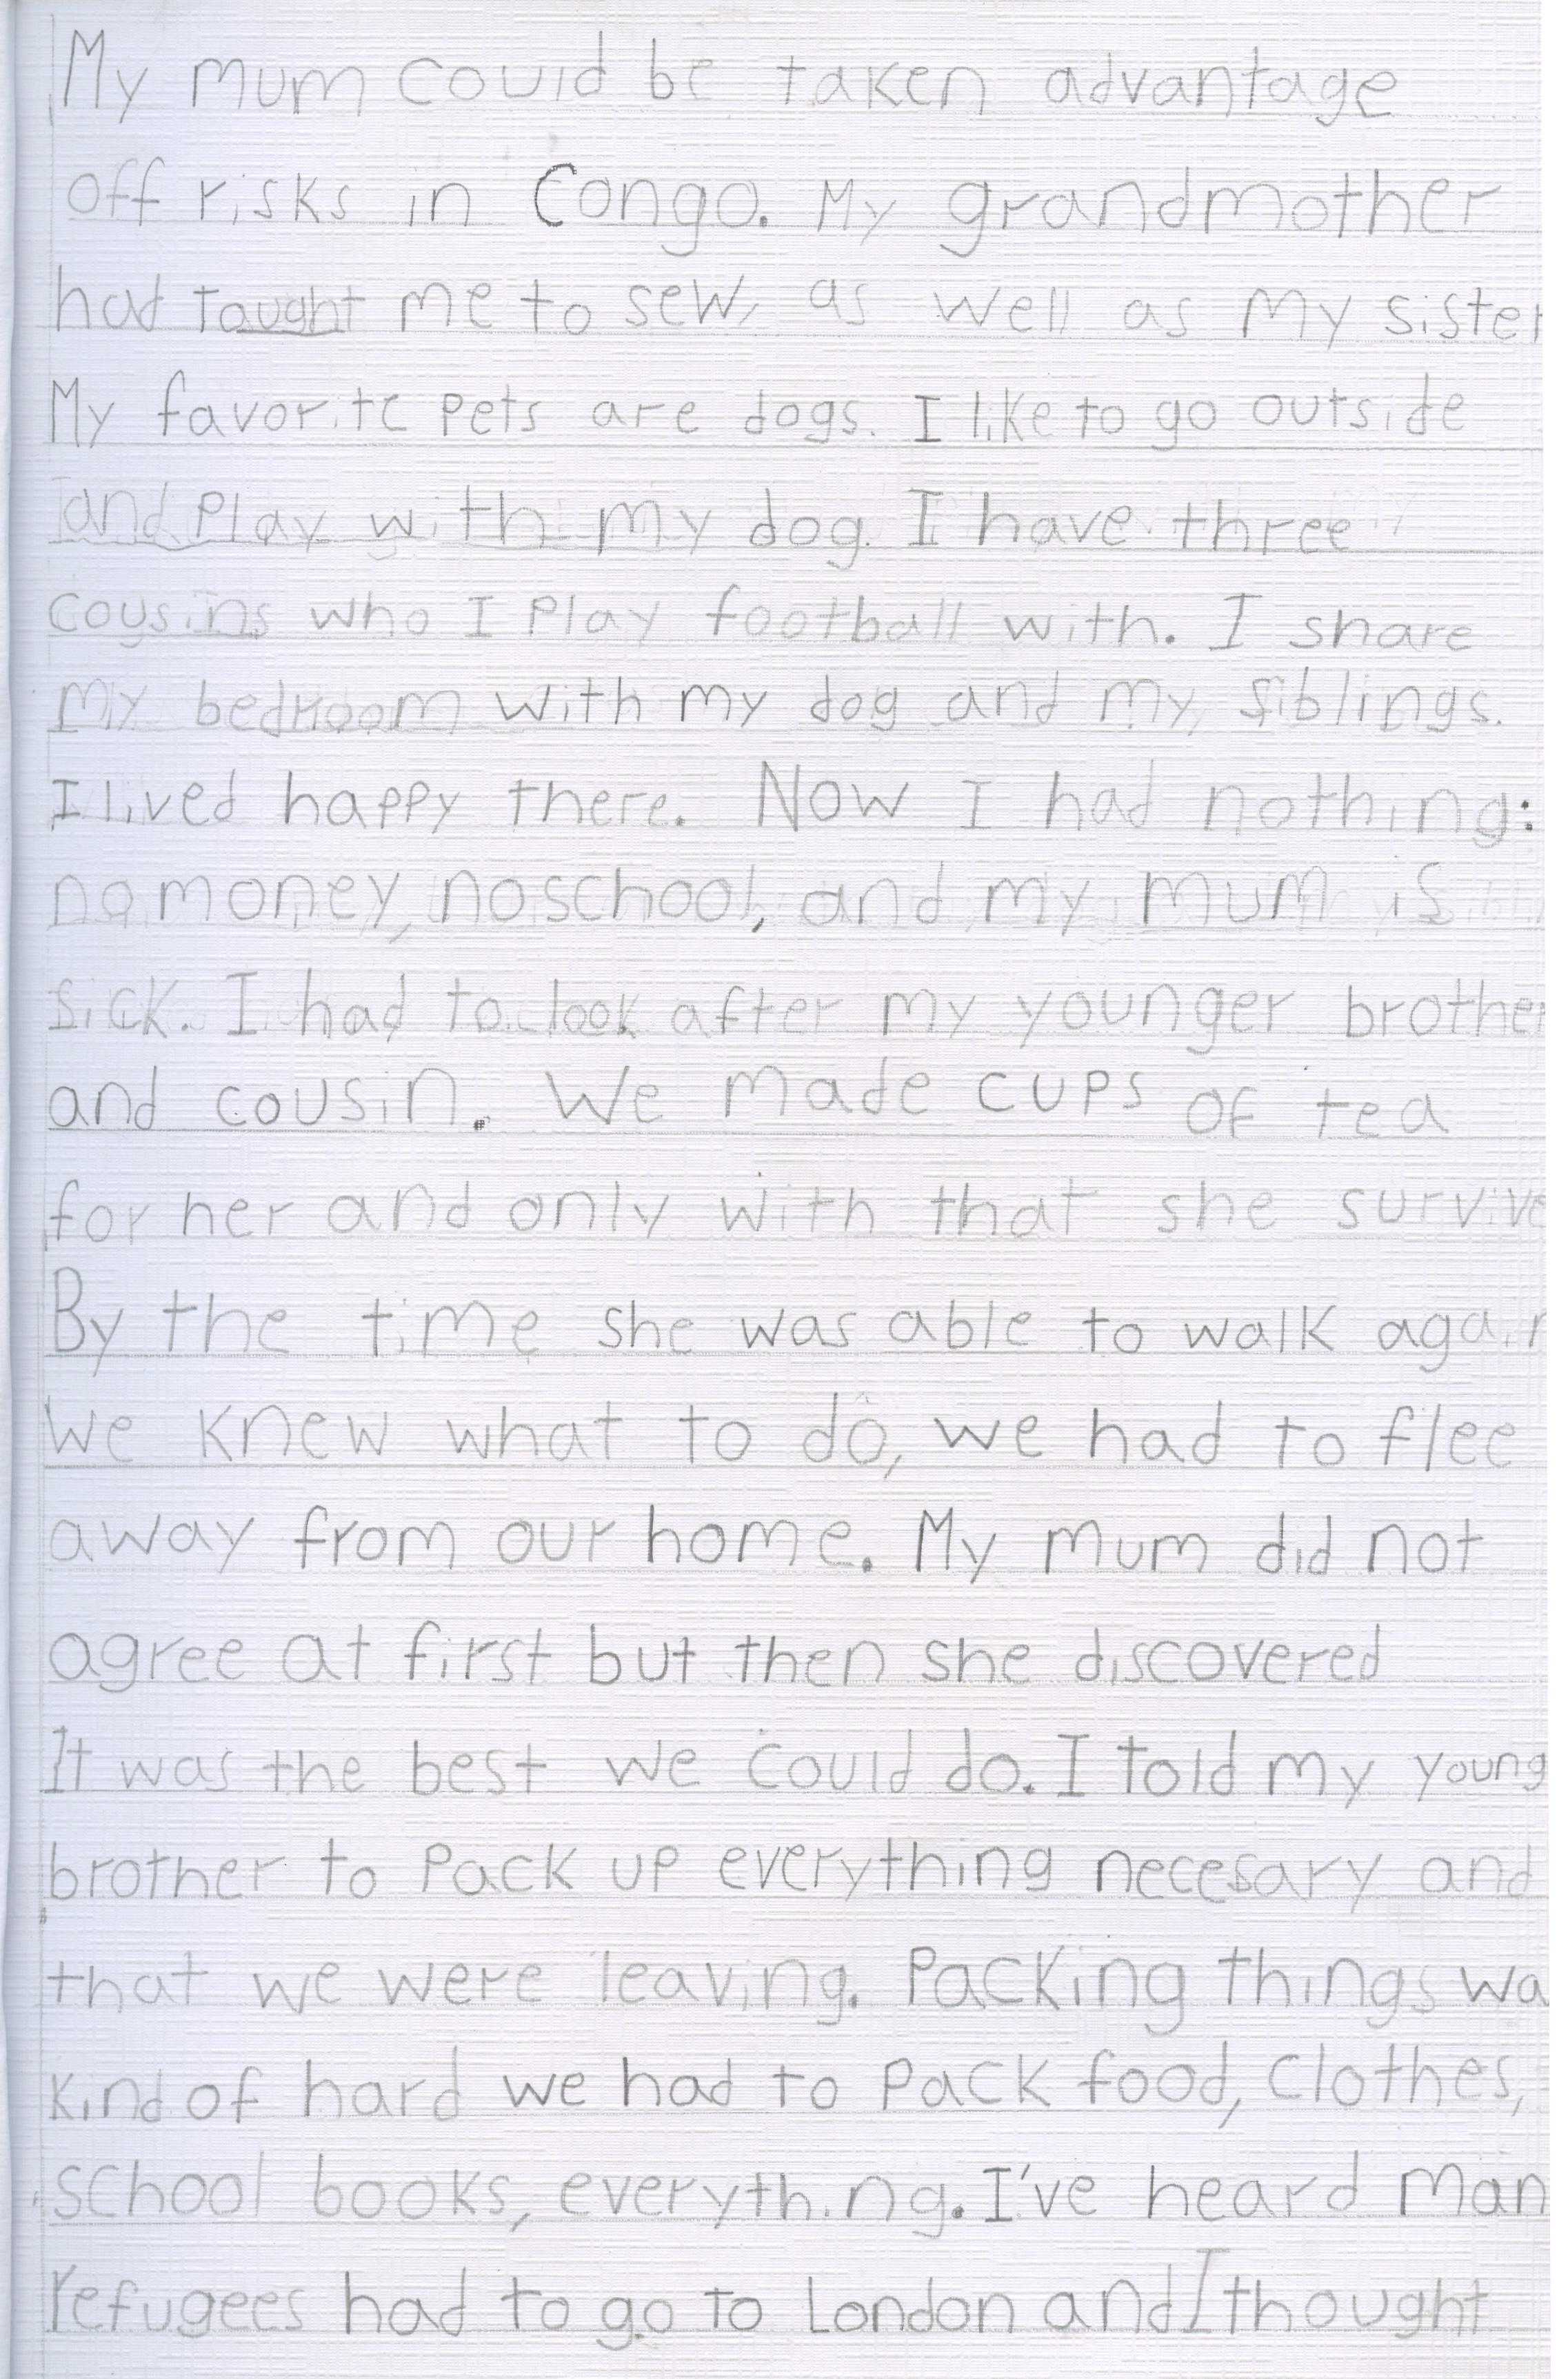 My mum could be taken advantage
off risks in Congo. My grandmother
had tought me to sew, as well as my sister
My favorite pets are dogs. I like to go outside
and play with my dog. I have three
cousins who I play football with. I share
my bedroom with my dog and my siblings.
I lived happy there. Now I had nothing:
no money, no school, and my mum is
sick. I had to look after my younger brother
and cousin. We made cups of tea
for her and only with that she survive
By the time she was able to walk again
we knew what to do, we had to flee
away from our home. My mum did not
agree at first but then she discovered
It was the best we could do. I told my young
brother to pack up everything necesary and
that we were leaving. Packing things wa
kind of hard we had to pack food, clothes,
school books, everything. I've heard man
refugees had to go to London and I thought